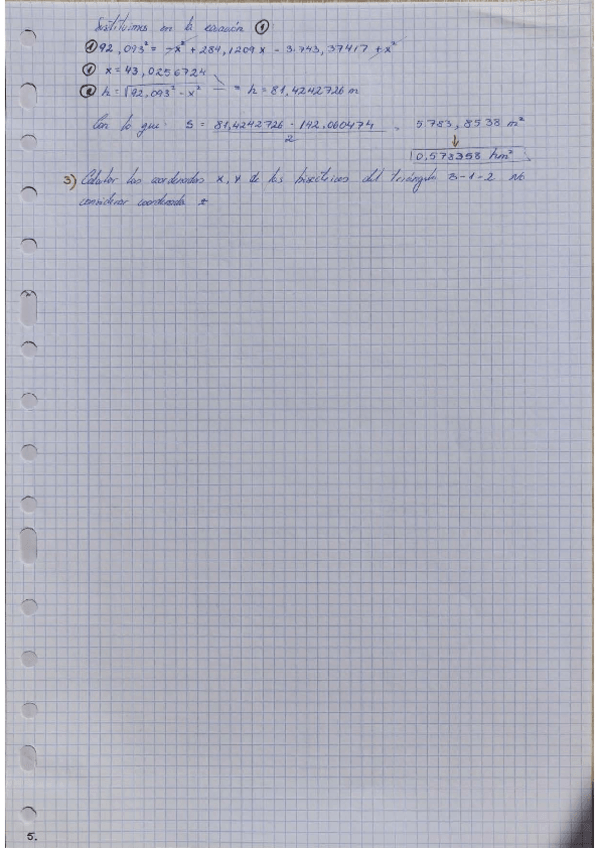 Sustituimos en la ecuación ①
① 92,093² = -x² + 284,1209 x - 3.743,37417 + x²
① x = 43,0256724
② h = √92,093² - x² = h = 81,4242726 m
Con lo que: S = 81,4242726 · 142,060474 / 2 = 5783,8538 m²
↓
0,578358 hm²
3) Calcular las coordenadas x, y de las bisectrices del triángulo 3-1-2 No
considerar coordenada z
5.